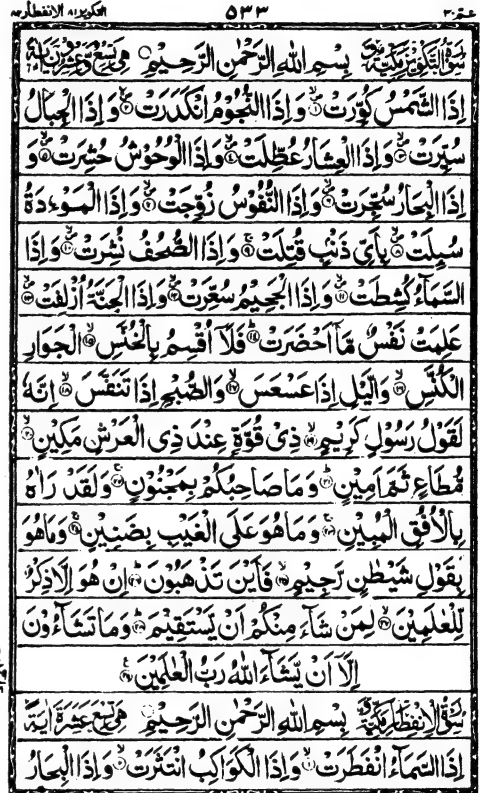 عـمّ ٣٠ ٥٣٣ التكوير ٨١ الانفطار ٨٢
سُوْرَةُ التَّكْوِيْرِ مَكِّيَّةٌ بِسْمِ اللهِ الرَّحْمٰنِ الرَّحِيْمِ هِيَ تِسْعٌ وَعِشْرُوْنَ اٰيَةً
اِذَا الشَّمْسُ كُوِّرَتْ ۙ۱ وَاِذَا النُّجُوْمُ انْكَدَرَتْ ۙ۲ وَاِذَا الْجِبَالُ
سُيِّرَتْ ۙ۳ وَاِذَا الْعِشَارُ عُطِّلَتْ ۙ۴ وَاِذَا الْوُحُوْشُ حُشِرَتْ ۙ۵ وَ
اِذَا الْبِحَارُ سُجِّرَتْ ۙ۶ وَاِذَا النُّفُوْسُ زُوِّجَتْ ۙ۷ وَاِذَا الْمَوْءٗدَةُ
سُىِٕلَتْ ۙ۸ بِاَيِّ ذَنْۢبٍ قُتِلَتْ ۚ۹ وَاِذَا الصُّحُفُ نُشِرَتْ ۙ۱۰ وَاِذَا
السَّمَآءُ كُشِطَتْ ۙ۱۱ وَاِذَا الْجَحِيْمُ سُعِّرَتْ ۙ۱۲ وَاِذَا الْجَنَّةُ اُزْلِفَتْ ۙ۱۳
عَلِمَتْ نَفْسٌ مَّاۤ اَحْضَرَتْ ؕ۱۴ فَلَاۤ اُقْسِمُ بِالْخُنَّسِ ۙ۱۵ الْجَوَارِ
الْكُنَّسِ ۙ۱۶ وَالَّيْلِ اِذَا عَسْعَسَ ۙ۱۷ وَالصُّبْحِ اِذَا تَنَفَّسَ ۙ۱۸ اِنَّهٗ
لَقَوْلُ رَسُوْلٍ كَرِيْمٍ ۙ۱۹ ذِيْ قُوَّةٍ عِنْدَ ذِي الْعَرْشِ مَكِيْنٍ ۙ۲۰
مُّطَاعٍ ثَمَّ اَمِيْنٍ ؕ۲۱ وَمَا صَاحِبُكُمْ بِمَجْنُوْنٍ ۚ۲۲ وَلَقَدْ رَاٰهُ
بِالْاُفُقِ الْمُبِيْنِ ۚ۲۳ وَمَا هُوَ عَلَى الْغَيْبِ بِضَنِيْنٍ ۚ۲۴ وَمَا هُوَ
بِقَوْلِ شَيْطٰنٍ رَّجِيْمٍ ۙ۲۵ فَاَيْنَ تَذْهَبُوْنَ ؕ۲۶ اِنْ هُوَ اِلَّا ذِكْرٌ
لِّلْعٰلَمِيْنَ ۙ۲۷ لِمَنْ شَآءَ مِنْكُمْ اَنْ يَّسْتَقِيْمَ ؕ۲۸ وَمَا تَشَآءُوْنَ
اِلَّاۤ اَنْ يَّشَآءَ اللهُ رَبُّ الْعٰلَمِيْنَ ۲۹
سُوْرَةُ الْاِنْفِطَارِ مَكِّيَّةٌ بِسْمِ اللهِ الرَّحْمٰنِ الرَّحِيْمِ هِيَ تِسْعَ عَشْرَةَ اٰيَةً
اِذَا السَّمَآءُ انْفَطَرَتْ ۙ۱ وَاِذَا الْكَوَاكِبُ انْتَثَرَتْ ۙ۲ وَاِذَا الْبِحَارُ